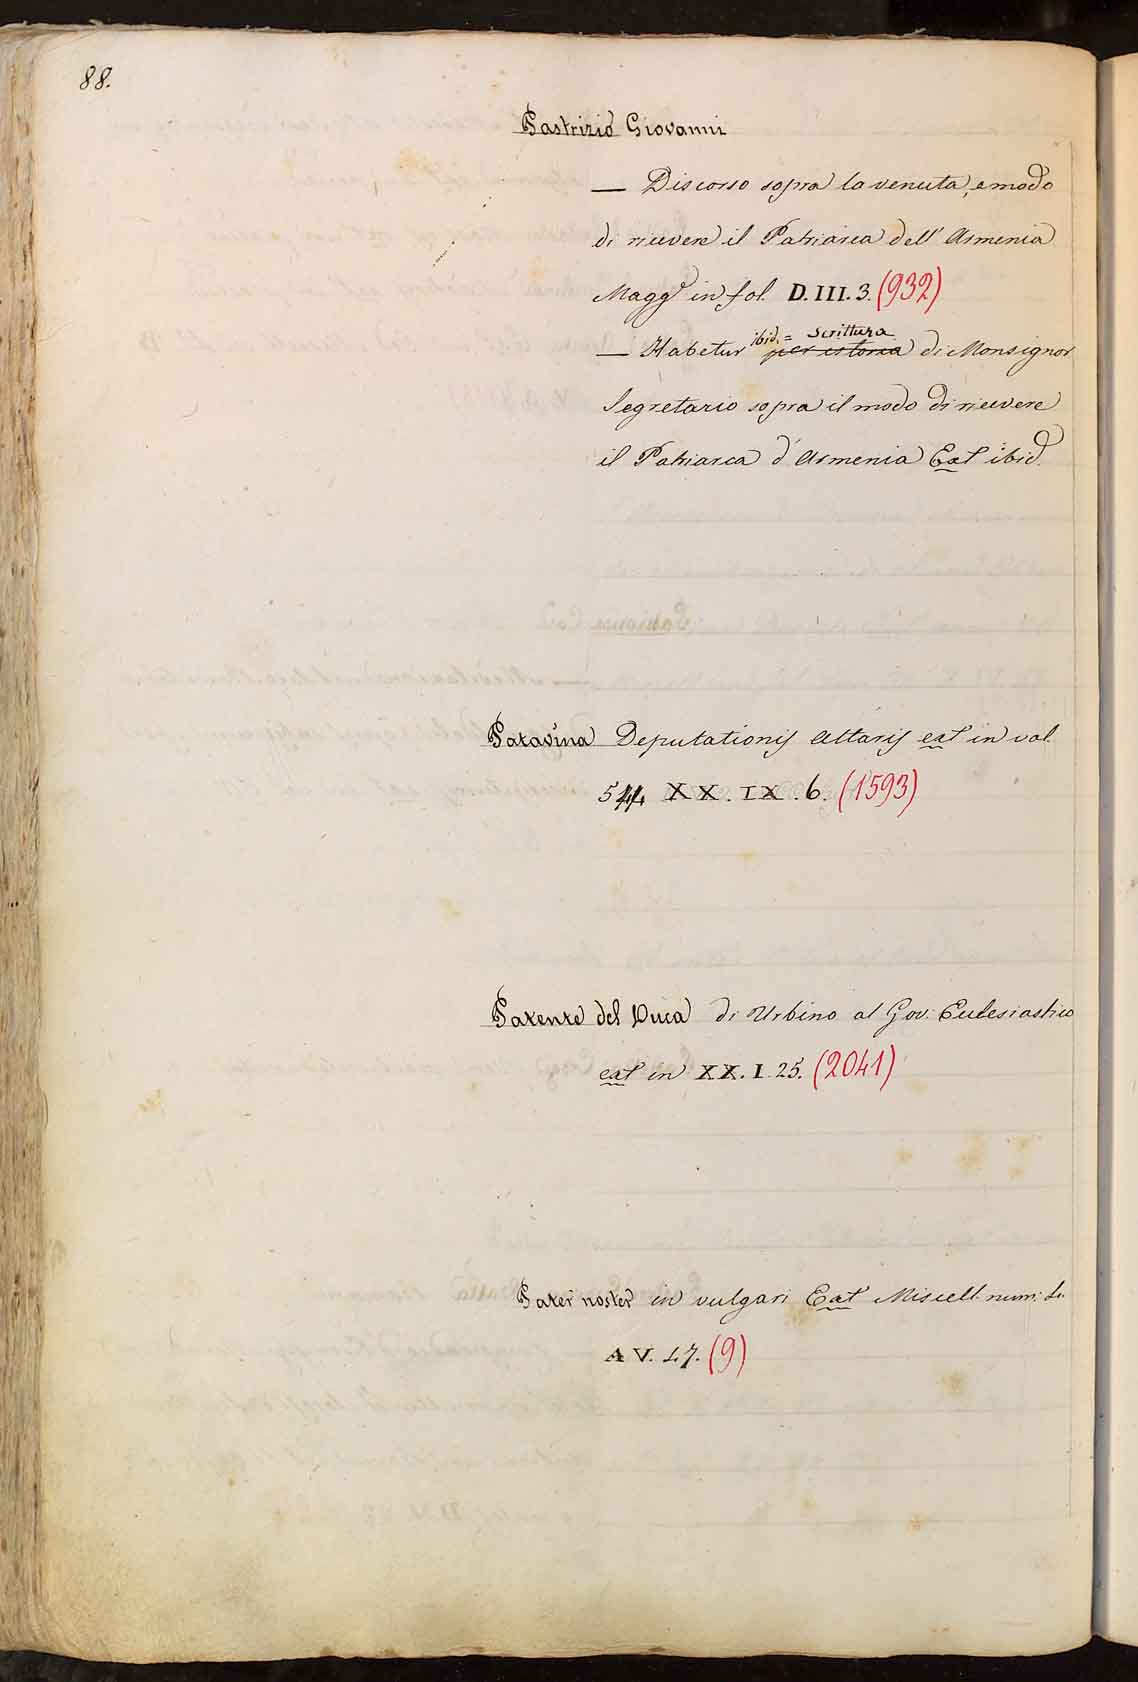 88.
Pastrizio Giovanni
— Discorso sopra la venuta, e modo
di ricevere il Patriarca dell' Armenia
Magg.e in fol. D.III.3. (932)
— Habetur ibid. = Scrittura per istoria di Monsignor
Segretario sopra il modo di ricevere
il Patriarca d'Armenia Eat ibid.
Patavina Deputationis Altaris eat in vol.
544 XX.IX.6. (1593)
Patente del Duca di Urbino al Gov. Eclesiastico
eat in XX.I.25. (2041)
Pater noster in vulgari Eat Miscell. num.
A V. 17. (9)